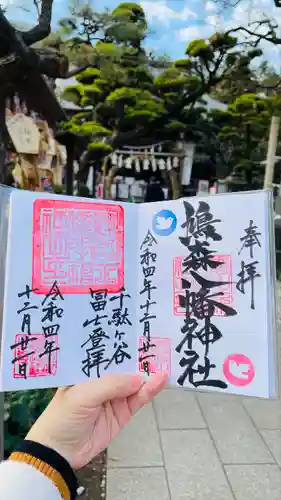 奉拝
鳩森八幡神社
令和四年十二月廿二日
十駄ヶ谷
冨士登拝
令和四年
十二月廿二日